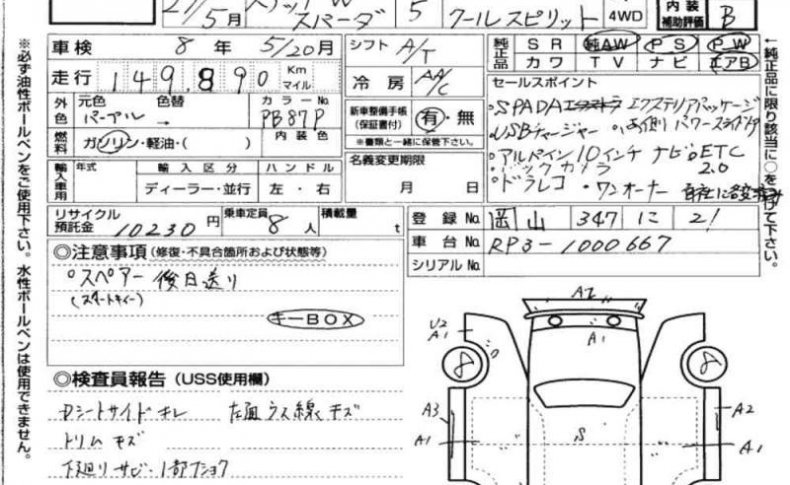 27/5月 スパーダ 5 クールスピリット 4WD 内装 補助評価 B
※必ず油性ボールペンをご使用下さい。水性ボールペンは使用できません。
←純正品に限り該当に○を付けて下さい。
車検 8年 5/20月 シフト A/T 純正品 SR 純AW PS PW
カワ TV ナビ エアB
走行 149,890 Km マイル 冷房 AAC
セールスポイント
外色 元色 パーアル 色替 → カラーNo PB87P
新車整備手帳(保証書付) 有・無
※書類と一緒に保管下さい。
燃料 ガソリン・軽油・( ) 内装色
・USBチャージャー
・アルパイン10インチナビ。ETC 2.0
・バックカメラ
・ドラレコ ・ワンオーナー
輸入車用 年式 輸入区分 ハンドル
ディーラー・並行 左・右
名義変更期限
月 日
リサイクル預託金 10230円 乗車定員 8人 積載量 t
登録No 岡山 347 に 21
車台No RP3-1000667
シリアルNo
◎注意事項(修復・不具合個所および状態等)
○スペアー後日送り
(スマートキー)
キーBOX
◎検査員報告(USS使用欄)
Dシートサイドキレ 左面ウス線キズ
トリムキズ
下廻りサビ・1部フショク
A1
U2
A1
A1
8
8
A3
A2
A1
S
A1